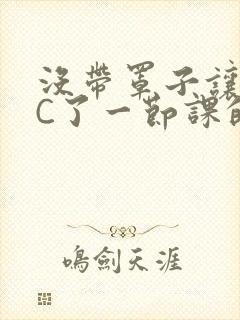 沒帶罩子讓
C了一節課的
鳴劍天涯